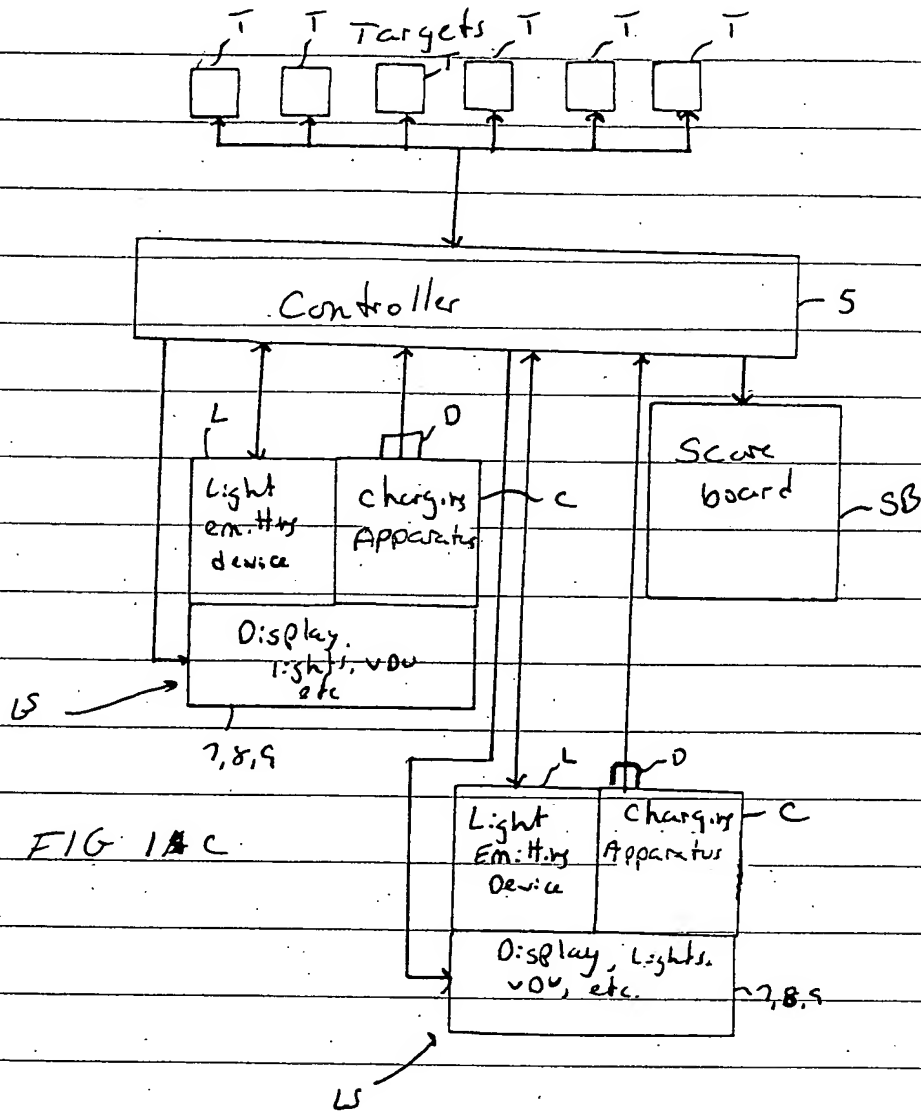 T T Targets T T T
T
Controller
5
L
D
Light
emitting
device
Charging
Apparatus
C
Score
board
SB
Display,
lights, VDU
etc
LS
7,8,9
L
D
Light
Emitting
Device
Charging
Apparatus
C
FIG 1 C
Display, Lights,
VDU, etc.
7,8,9
LS